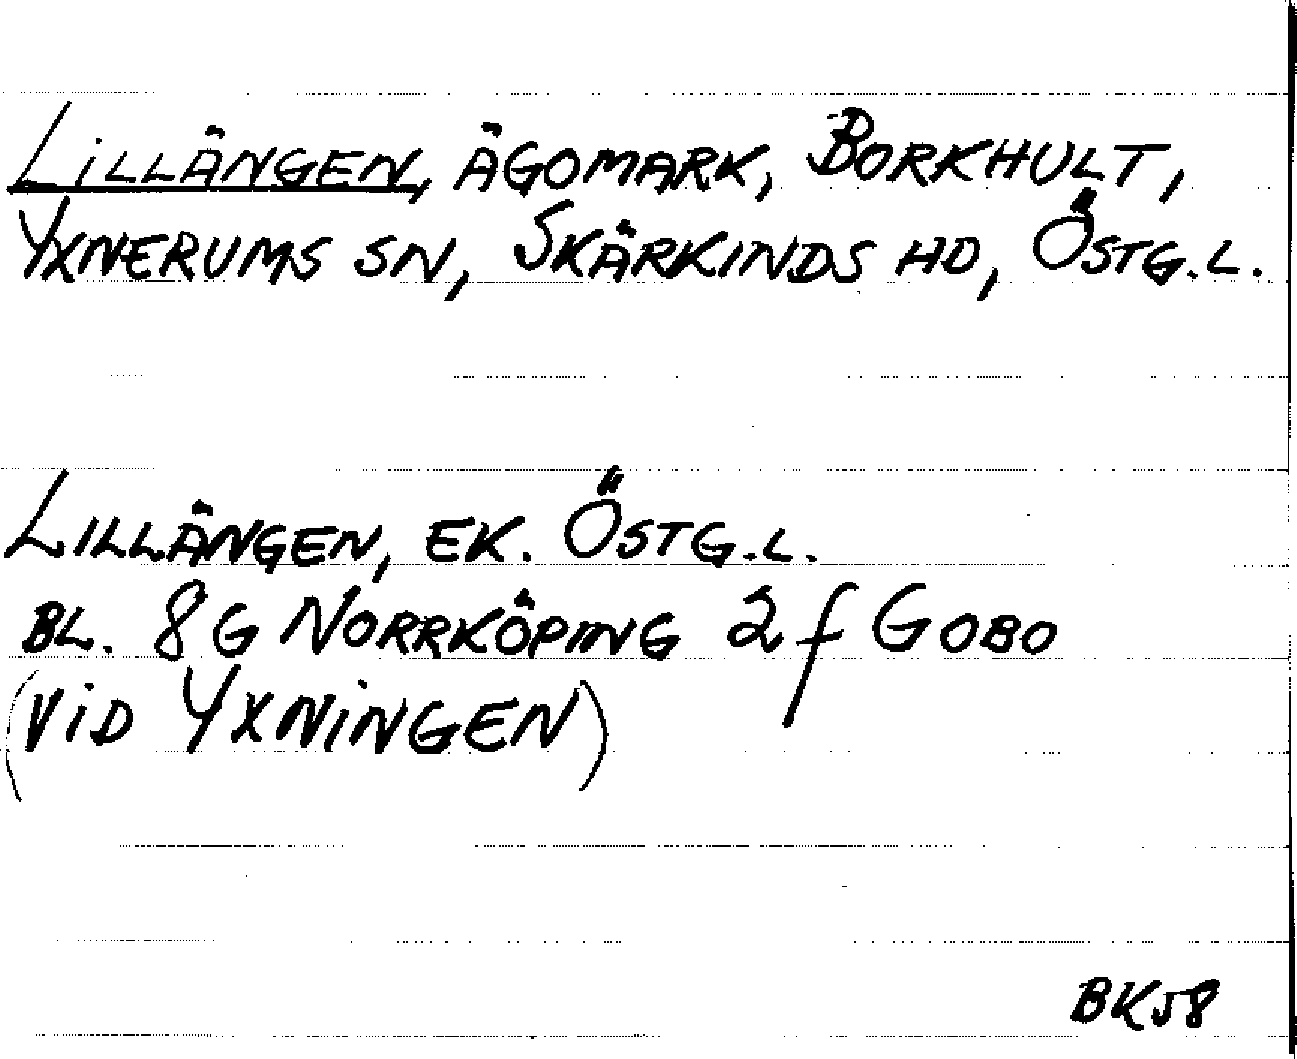 LILLÄNGEN, ÄGOMARK, BORKHULT,
YXNERUMS SN, SKÄRKINDS HD, ÖSTG.L.
LILLÄNGEN, EK. ÖSTG.L.
BL. 8G NORRKÖPING 2f GOBO
(VID YXNINGEN)
BK58